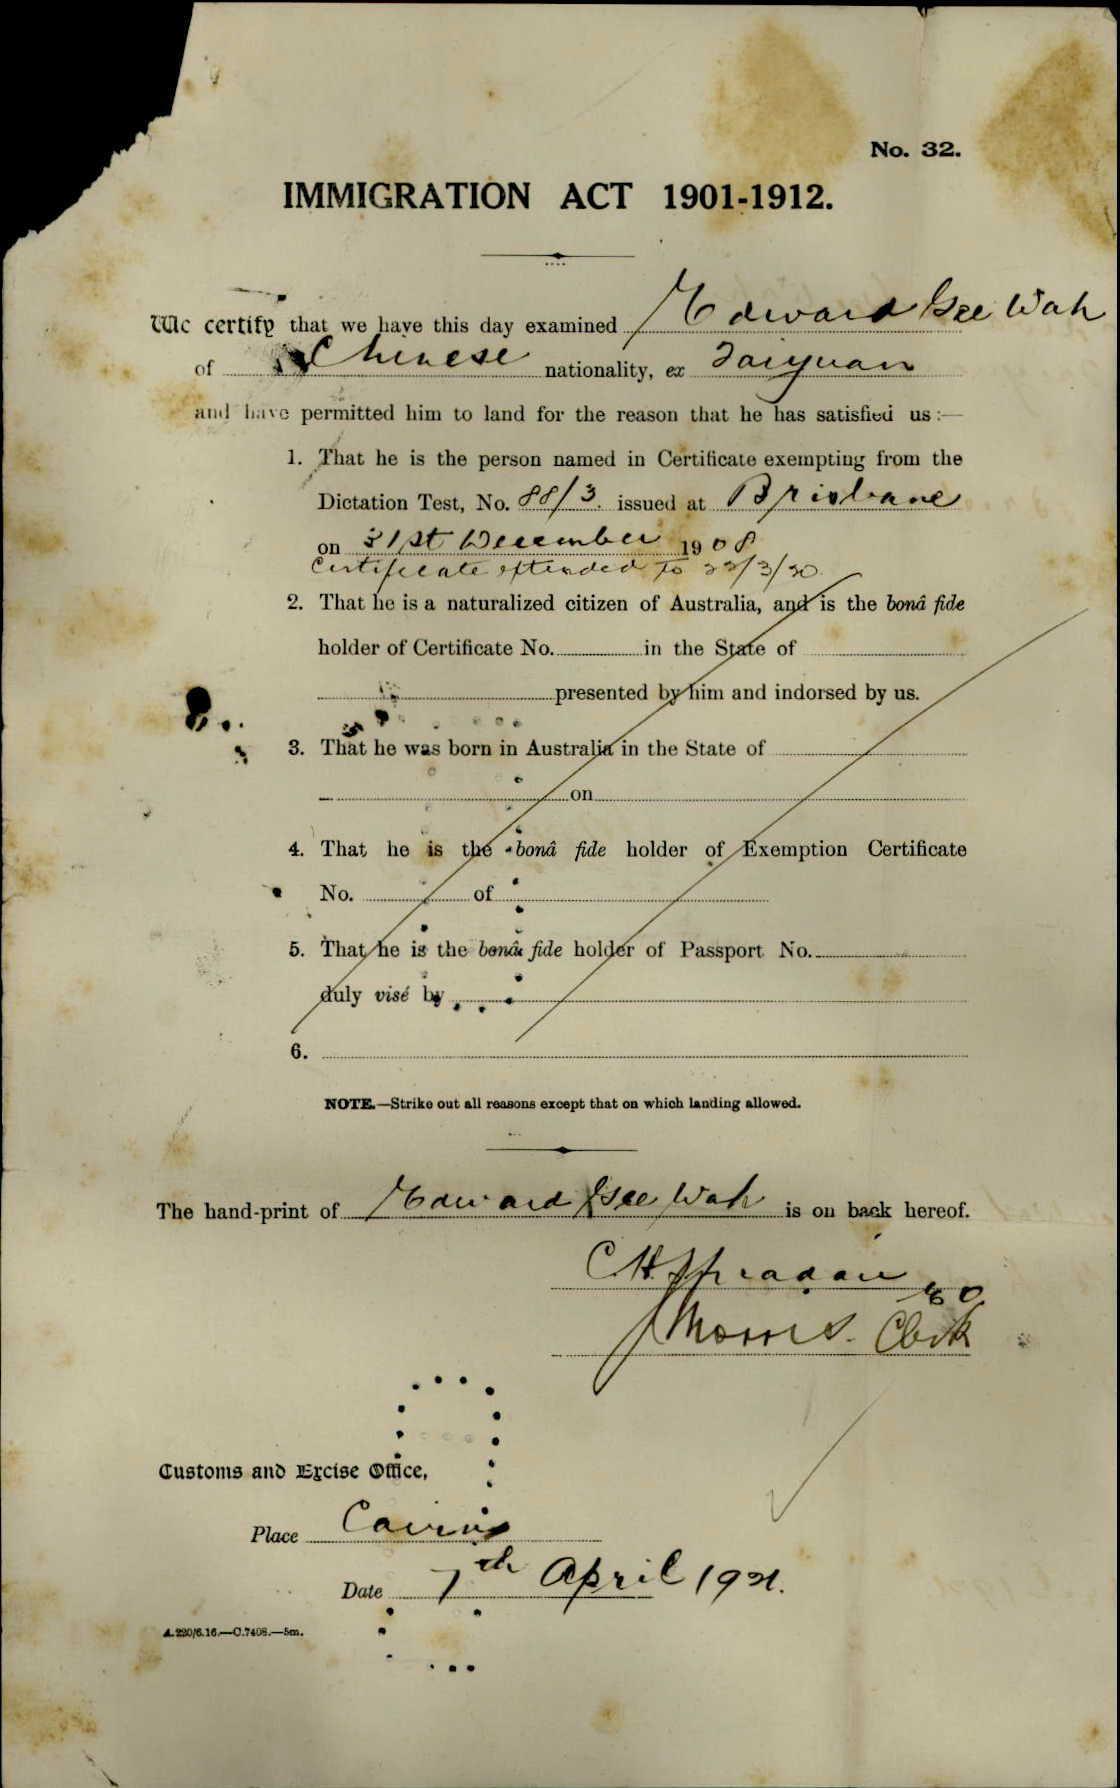 No. 32.
IMMIGRATION ACT 1901-1912.
We certify that we have this day examined Edward Gee Wah
of Chinese nationality, ex Taiyuan
and have permitted him to land for the reason that he has satisfied us :—
1. That he is the person named in Certificate exempting from the
Dictation Test, No. 88/3. issued at Brisbane
on 31st December 1908
Certificate extended to 22/3/20.
2. That he is a naturalized citizen of Australia, and is the bonâ fide
holder of Certificate No. in the State of
presented by him and indorsed by us.
3. That he was born in Australia in the State of
on
4. That he is the bonâ fide holder of Exemption Certificate
No. of
5. That he is the bonâ fide holder of Passport No.
duly visé by
6.
NOTE.—Strike out all reasons except that on which landing allowed.
The hand-print of Edward Gee Wah is on back hereof.
C.H.
J Morris. Clerk
Customs and Excise Office,
Place Cairns
Date 7th April 1921.
A.220/6.16.—C.7408.—5m.